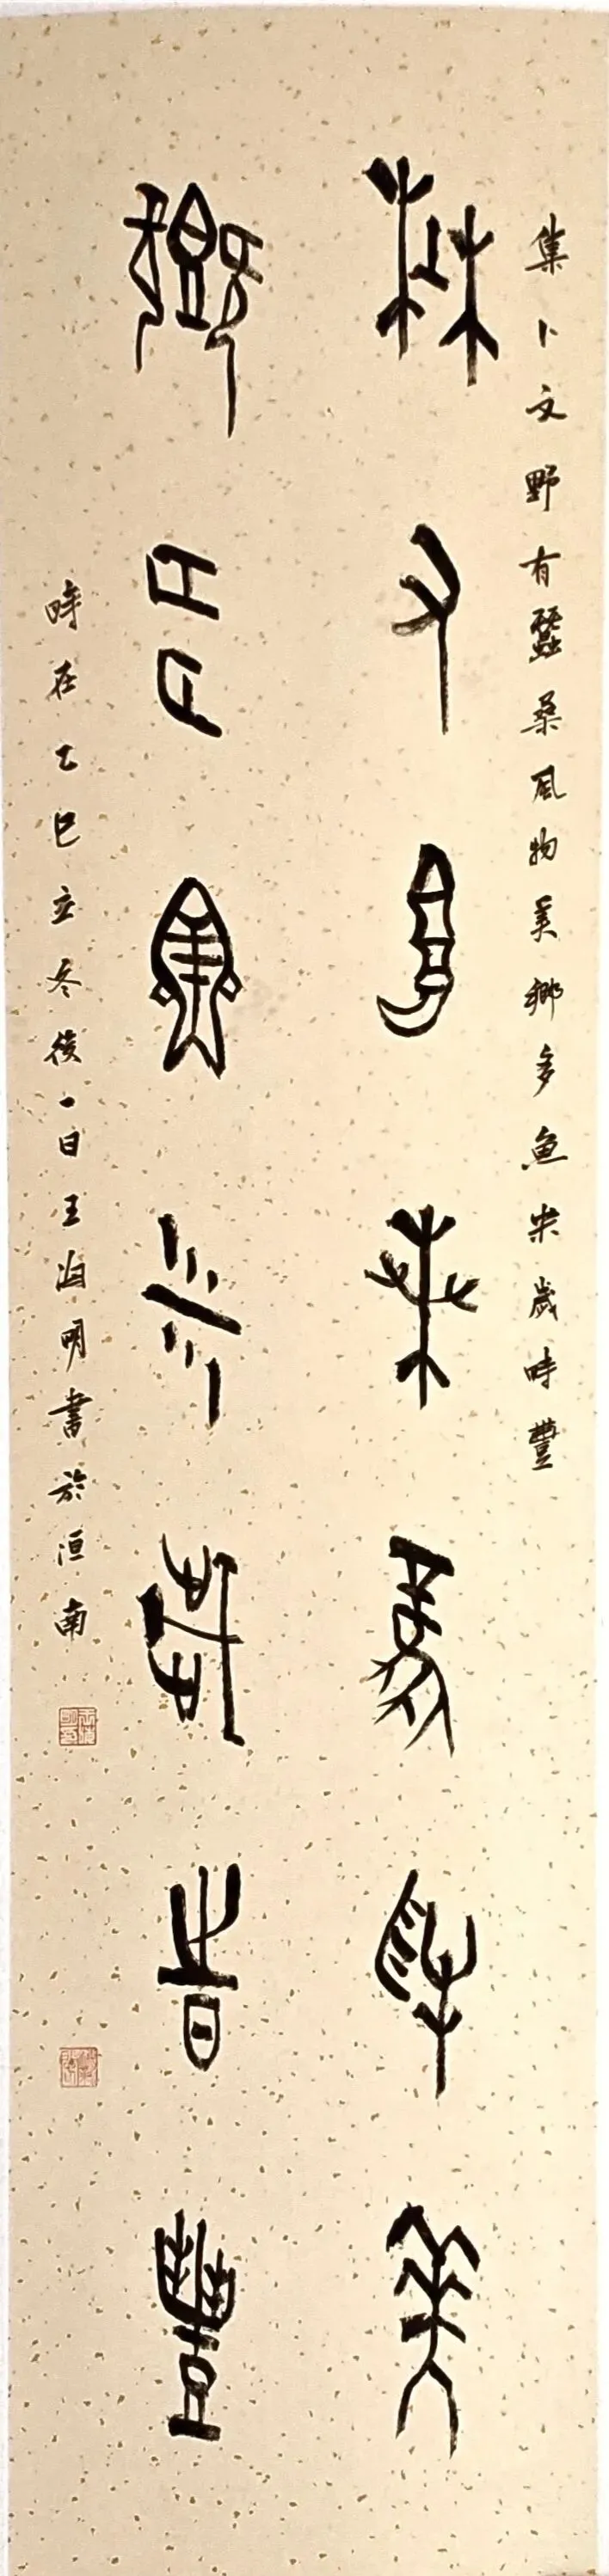 集卜文野有蠶桑風物美鄉多魚米歲時豐
野有蠶桑風物美
鄉多魚米歲時豐
時在乙巳立冬後一日王海明書於洹南